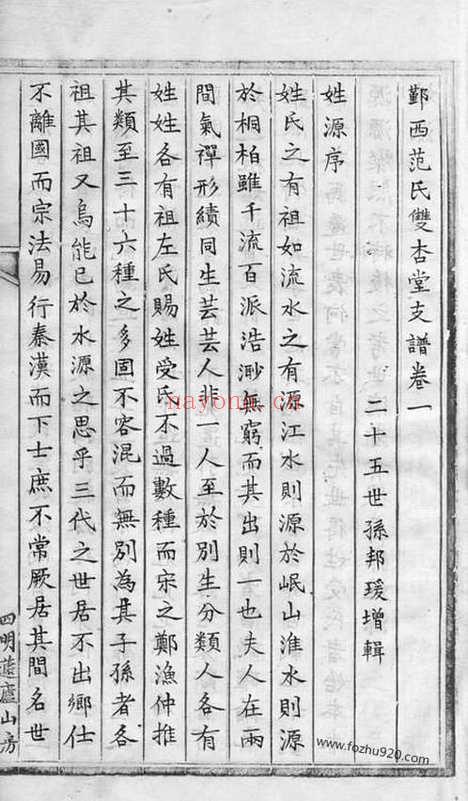 鄞西范氏雙杏堂支譜卷一
二十五世孫邦瑗增輯
姓源序
姓氏之有祖如流水之有源江水則源於岷山淮水則源
於桐柏雖千流百派浩渺無窮而其出則一也夫人在兩
間氣禪形續同生芸芸人非一人至於別生分類人各有
姓姓各有祖左氏賜姓受氏不過數種而宋之鄭漁仲推
其類至三十六種之多固不容混而無別為其子孫者各
祖其祖又烏能已於水源之思乎三代之世居不出鄉仕
不離國而宗法易行秦漢而下士庶不常厥居其間名世
四明蘧廬山房
nayona.cn
www.fozhu920.com